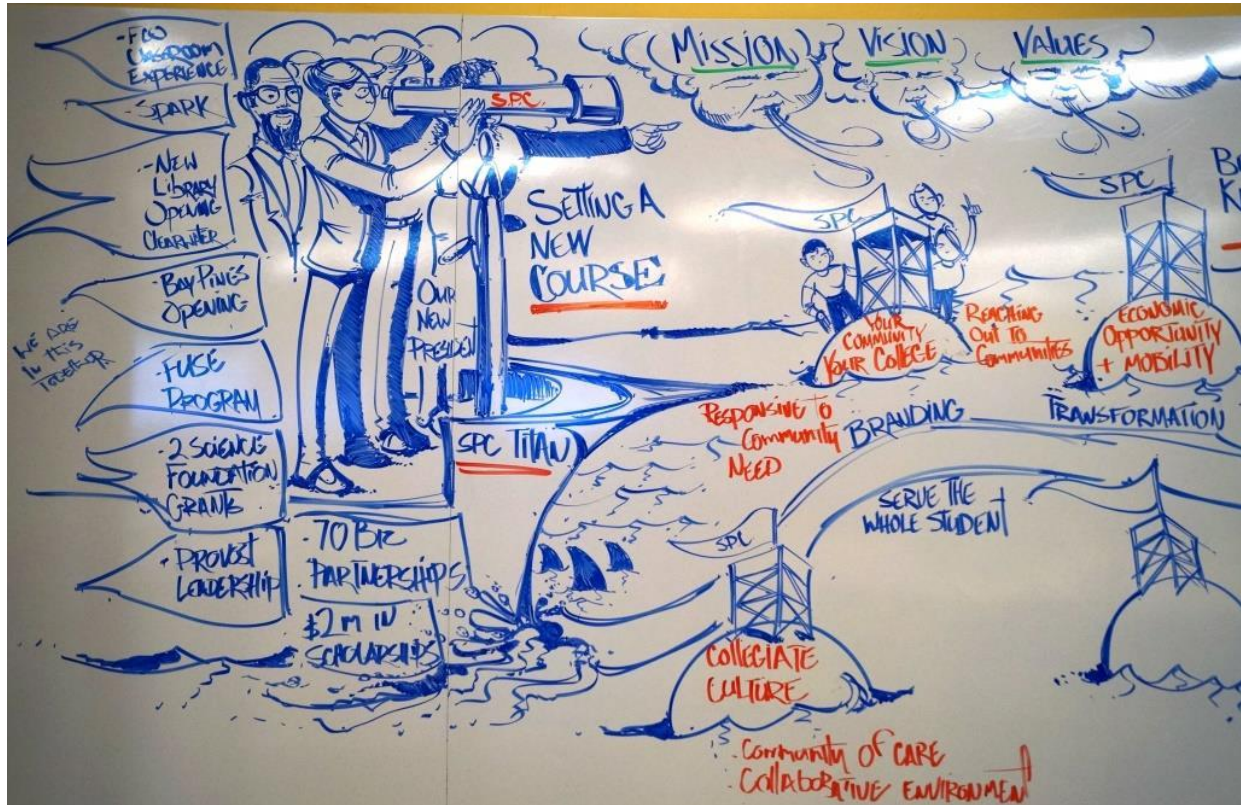 - FLO
CLASSROOM
EXPERIENCE
- SPARK
- NEW
LIBRARY
OPENING
CLEARWATER
- BAY PINES
OPENING
WE ARE
IN THIS
TOGETHER
- FUSE
PROGRAM
- 2 SCIENCE
FOUNDATION
GRANTS
- PROVOST
LEADERSHIP
- 70 BIZ
PARTNERSHIPS
$2M IN
SCHOLARSHIPS
S.P.C.
OUR
NEW
PRESIDENT
SPC TITAN
SETTING A
NEW
COURSE
MISSION
VISION
VALUES
SPC
YOUR
COMMUNITY
YOUR COLLEGE
REACHING
OUT TO
COMMUNITIES
SPC
ECONOMIC
OPPORTUNITY
+ MOBILITY
RESPONSIVE TO
COMMUNITY
NEED
BRANDING
TRANSFORMATION
SERVE THE
WHOLE STUDENT
SPC
COLLEGIATE
CULTURE
- COMMUNITY OF CARE
- COLLABORATIVE ENVIRONMENT